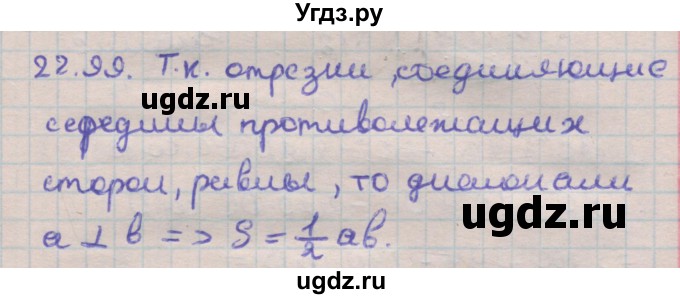 Угдз.ру
22.99. Т.к. отрезки, соединяющие
ugdz.ru
середины противолежащих
сторон, равны, то диагонали
ugdz.ru
a ⊥ b => S = 1/2 ab.
ugdz.ru